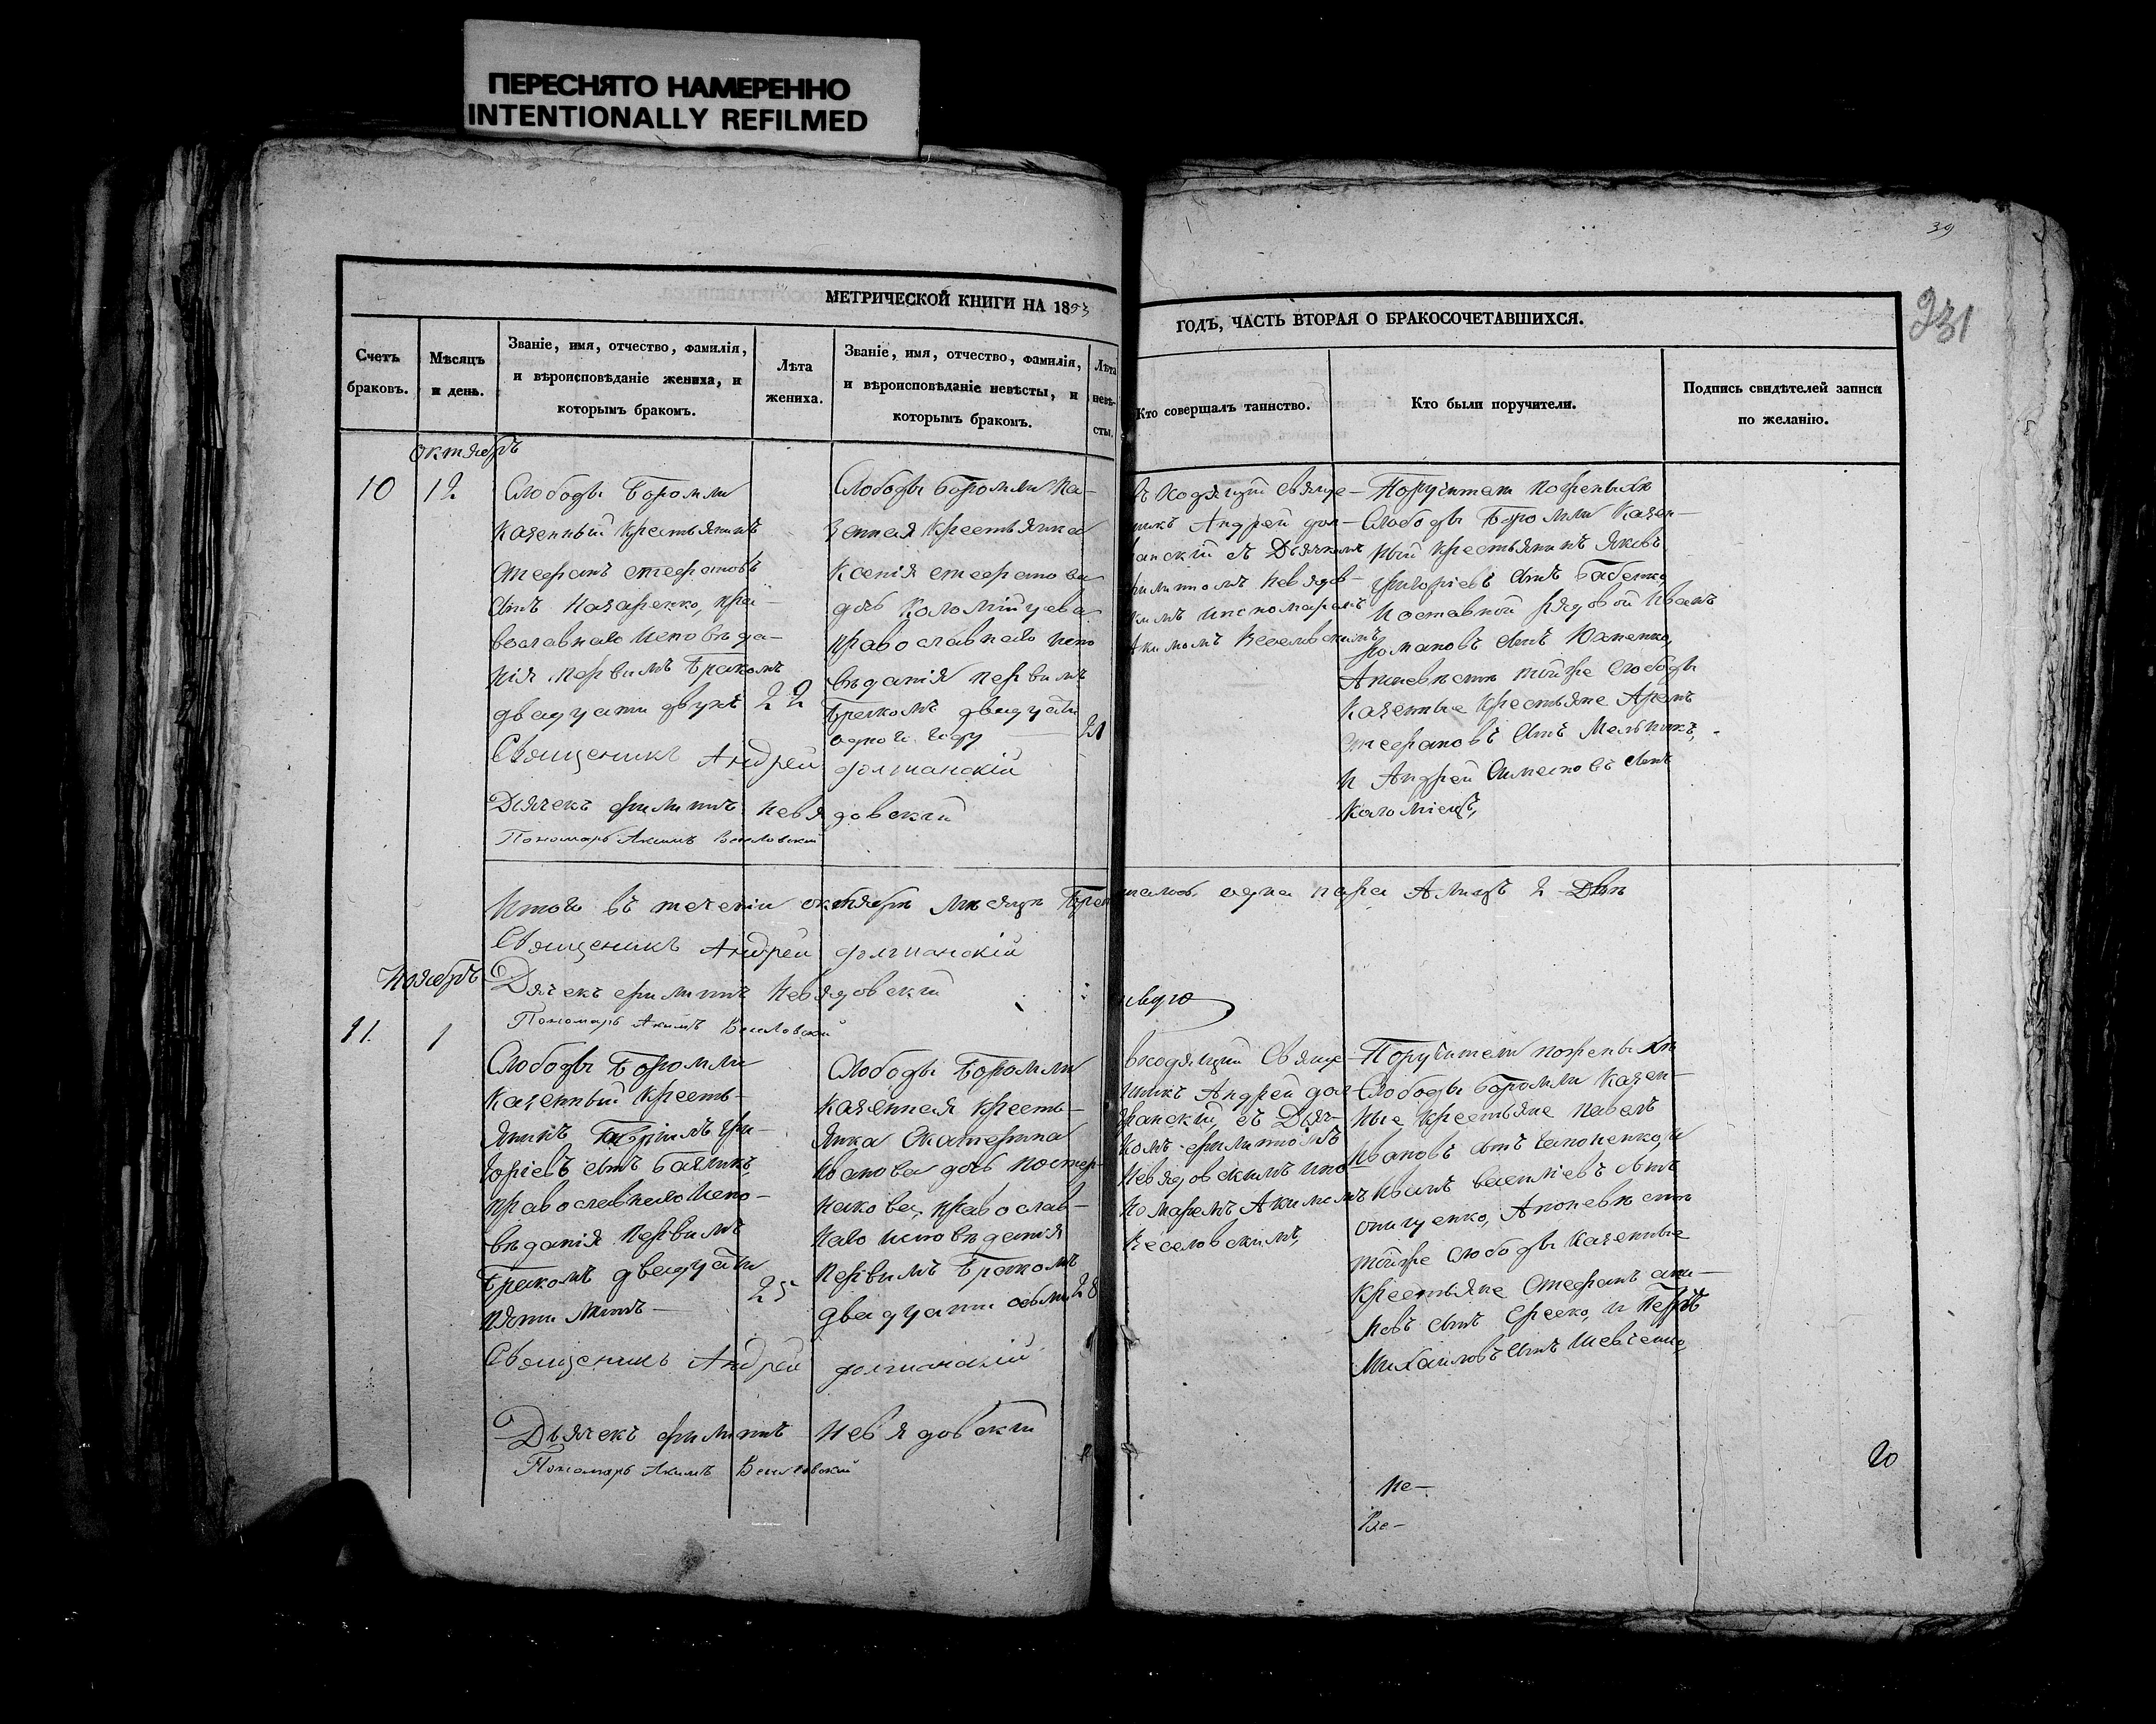 ПЕРЕСНЯТО НАМЕРЕННО
INTENTIONALLY REFILMED
39
231
МЕТРИЧЕСКОЙ КНИГИ НА 1853
ГОДЪ, ЧАСТЬ ВТОРАЯ О БРАКОСОЧЕТАВШИХСЯ.
Счетъ
браковъ.
Мѣсяцъ
и день.
Званіе, имя, отчество, фамилія,
и вѣроисповѣданіе жениха, и
которымъ бракомъ.
Лѣта
жениха.
Званіе, имя, отчество, фамилія,
и вѣроисповѣданіе невѣсты, и
которымъ бракомъ.
Лѣта
невѣ-
сты.
Кто совершалъ таинство.
Кто были поручители.
Подпись свидѣтелей записи
по желанію.
Октябрь
10
12
Слободы Боромли
казенный крестьянинъ
Стефанъ Стефановъ
сынъ Назаренко, пра-
вославнаго исповѣда-
нія первымъ бракомъ
двадцати двухъ
22
Слободы Боромли ка-
зенная крестьянка
Ксенія Стефанова
дочь Коломійцева
православнаго испо
вѣданія первымъ
бракомъ двадцати
одного году
21
Священникъ Андрей
Дьячекъ Филиппъ Невядовскій
Пономарь Акимъ Веселовскій
Андрей
съ Дьячкомъ
Акимомъ Веселовскимъ
Поручители по женихѣ
Слободы Боромли казен-
ный крестьянинъ Яковъ
Григоріевъ сынъ Бабенко,
и отставной рядовой Иванъ
Романовъ сынъ
А по невѣстѣ тойже слободы
казенные крестьяне
Стефановъ сынъ Мельникъ,
и Андрей сынъ
Коломіецъ,
Итого въ теченіи октября мѣсяцѣ
одна пара А лицъ 2 двѣ
Священникъ Андрей
Ноябрь
Дьячекъ Филиппъ Невядовскій
Пономарь Акимъ Веселовскій
11.
1
Слободы Боромли
казенный кресть-
янинъ Гавріилъ Гри-
горіевъ сынъ
православнаго испо-
вѣданія первымъ
бракомъ двадцати
пяти лѣтъ
25
Слободы Боромли
казенная кресть-
янка Екатерина
Иванова дочь
православ-
наго исповѣданія
первымъ бракомъ
двадцати осьми
28
Приходящій Свяще-
нникъ Андрей
съ Дьяч-
комъ Филиппомъ
Невядовскимъ и по
номаремъ Акимомъ
Веселовскимъ,
Поручители по женихѣ
Слободы Боромли казен-
ные крестьяне Павелъ
Ивановъ сынъ и
Иванъ Василіевъ сынъ
А по невѣстѣ
тойже слободы казенные
крестьяне Стефанъ
сынъ и Петръ
Михаиловъ сынъ Шевченко,
Священникъ Андрей
Дьячекъ Филиппъ Невядовскій
Пономарь Акимъ Веселовскій
Не-
Ве-
20